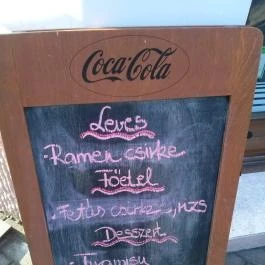 Coca-Cola
Leves
- Ramen csirke
Főétel
- Fetás csirke, rizs
Desszert
- Tiramisu